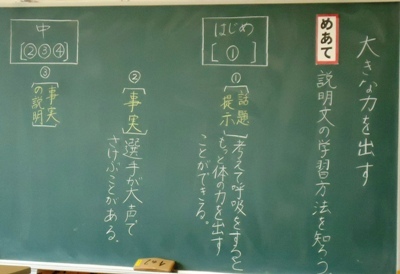 大きな力を出す
めあて
説明文の学習方法を知ろう
はじめ
[①]
①
[話題
提示]
考えて呼吸をすると
もっと体の力を出す
ことができる。
中
[②③④]
②
[事実]
選手が大声で
さけぶことがある。
③
[事実
の説明]